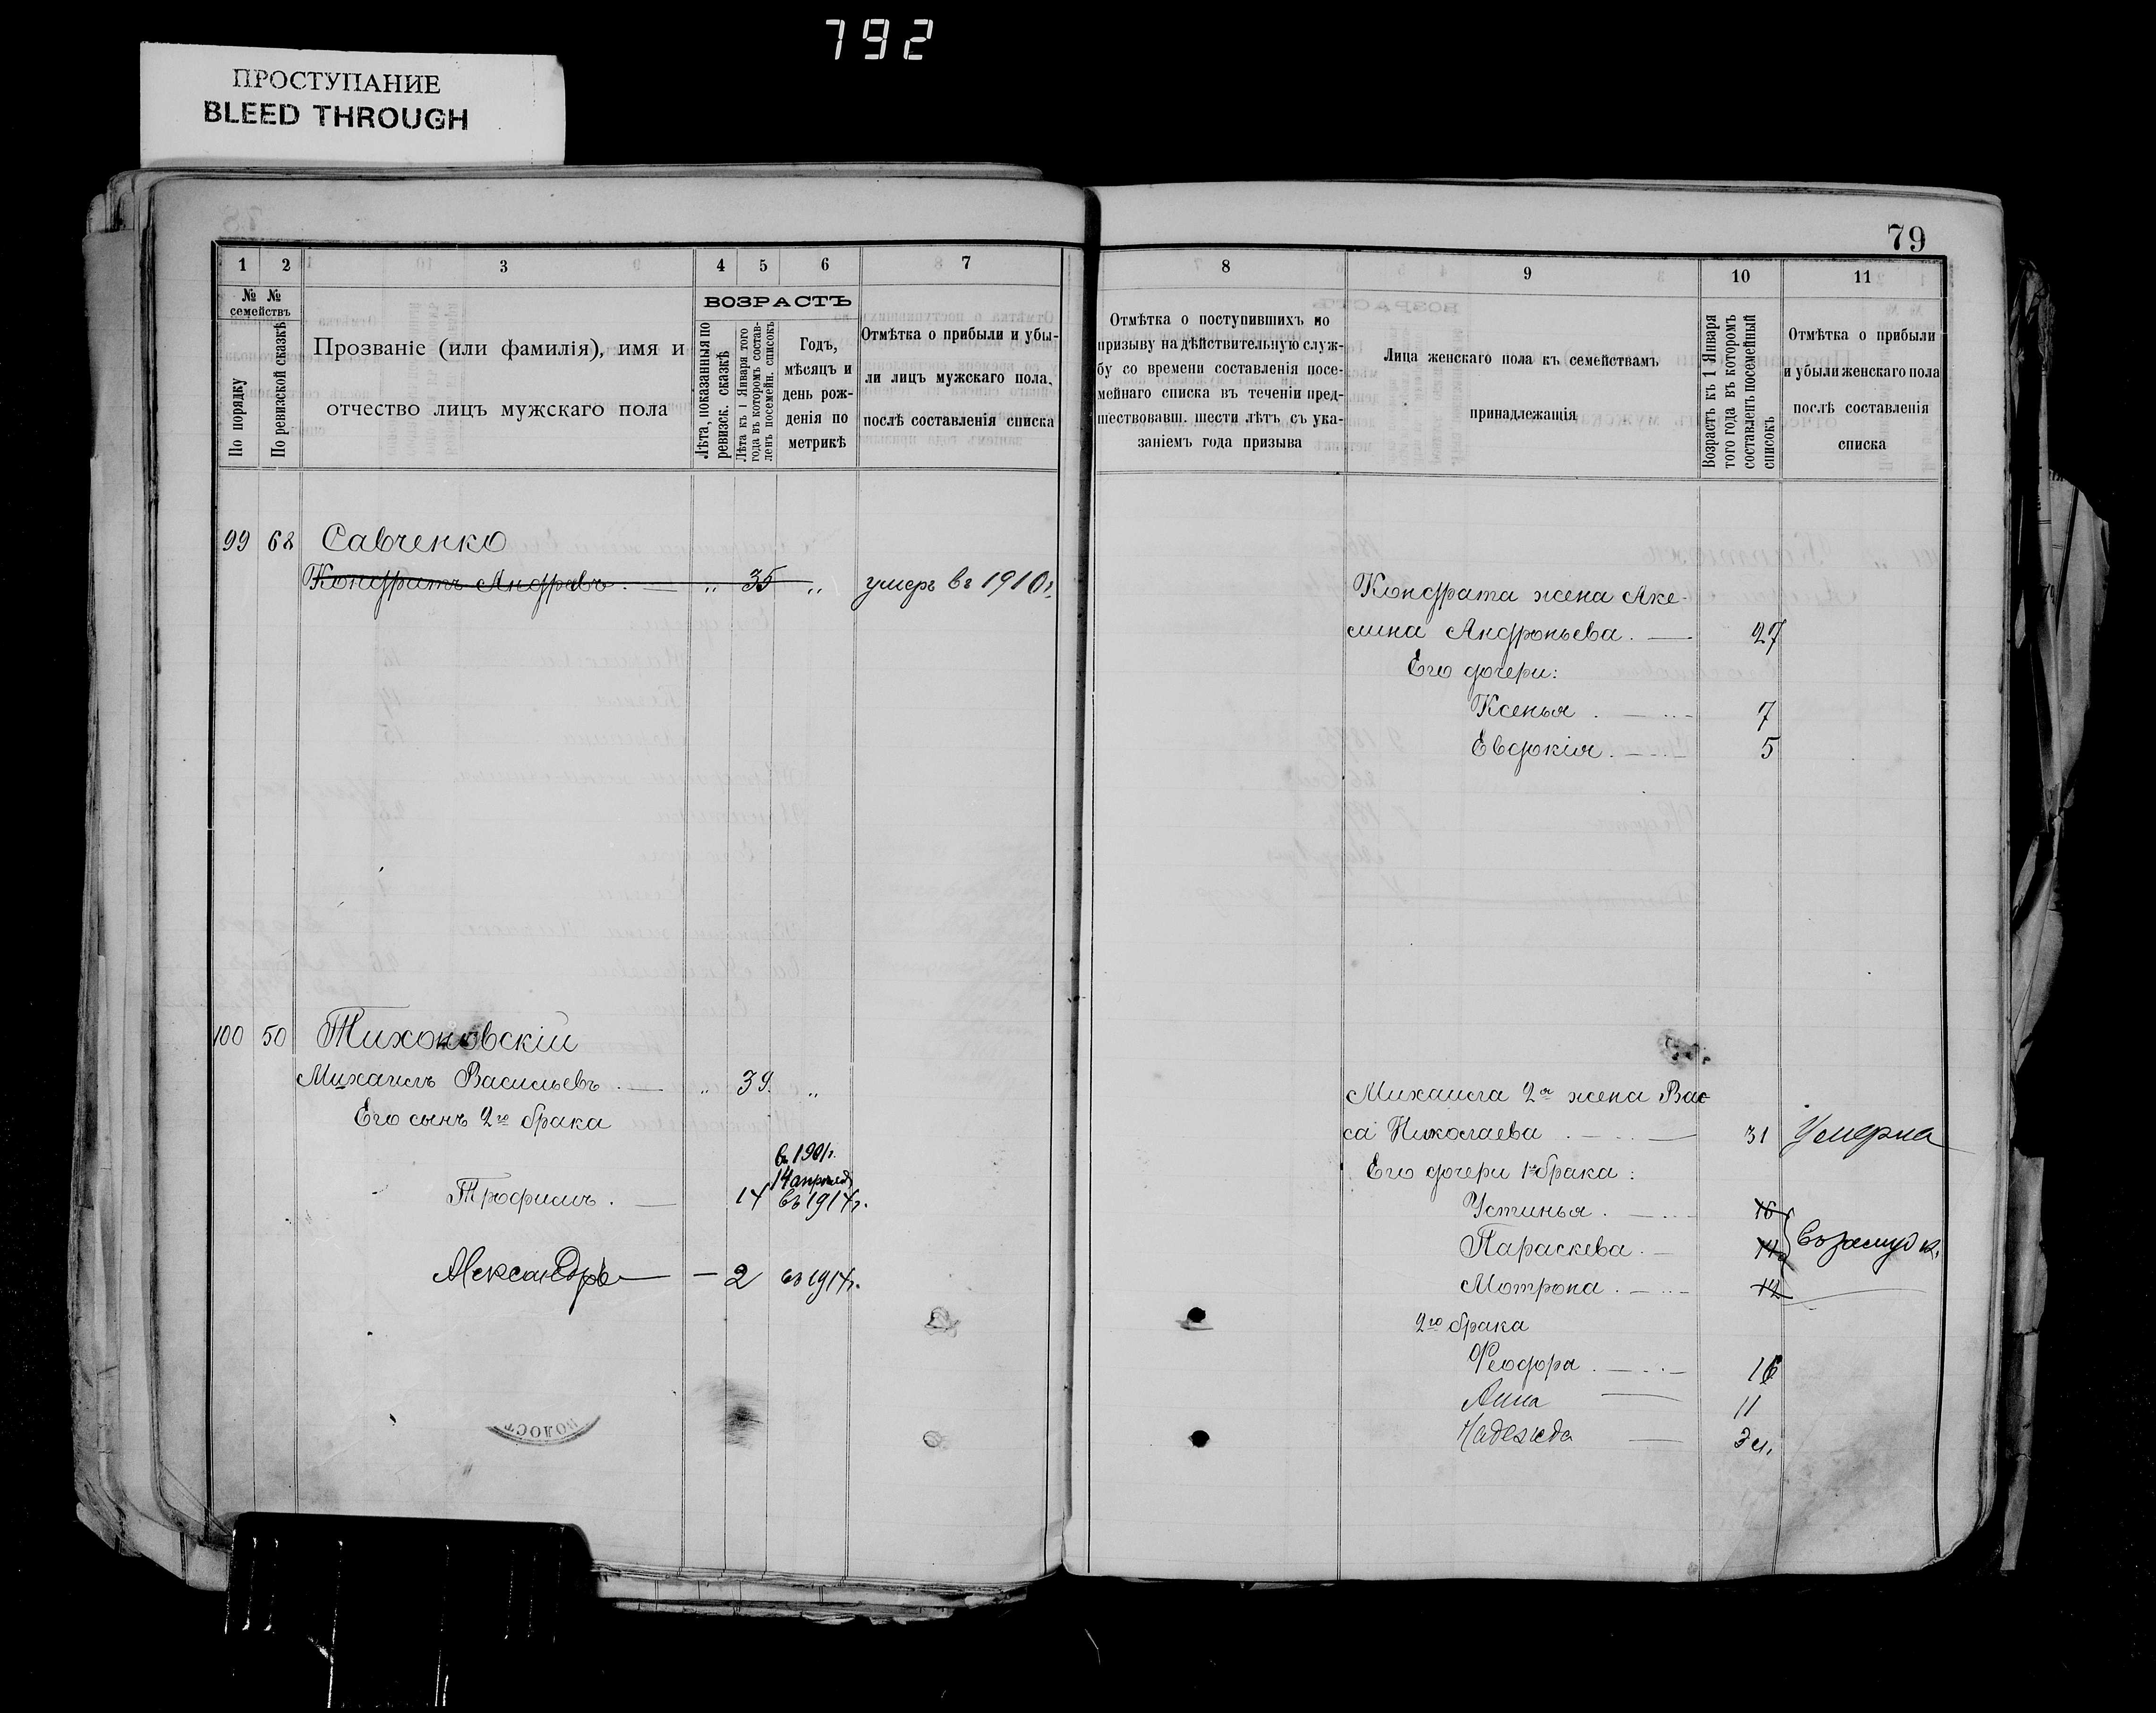 792
ПРОСТУПАНИЕ
BLEED THROUGH
79
1 2 3 4 5 6 7
№ № семействъ
По порядку
По ревизской сказкѣ
Прозваніе (или фамилія), имя и
отчество лицъ мужскаго пола
ВОЗРАСТЪ
Лѣта, показанныя по ревизск. сказкѣ
Лѣта къ 1 Января того года въ которомъ составленъ посемейн. списокъ
Годъ,
мѣсяцъ и
день рож-
денія по
метрикѣ
Отмѣтка о прибыли и убы-
ли лицъ мужскаго пола,
послѣ составленія списка
8 9 10 11
Отмѣтка о поступившихъ по
призыву на дѣйствительную служ-
бу со времени составленія посе-
мейнаго списка въ теченіи пред-
шествовавш. шести лѣтъ съ ука-
заніемъ года призыва
Лица женскаго пола къ семействамъ
принадлежащія
Возрастъ къ 1 Января
того года въ которомъ
составленъ посемейный
списокъ
Отмѣтка о прибыли
и убыли женскаго пола
послѣ составленія
списка
99 68 Савченко
Кондратъ Андреевъ 35 умеръ въ 1910 г.
Кондрата жена Аке-
лина Андроньева 27
Его дочери:
Ксенья 7
Евдокія 5
100 50 Тихоновскій
Михаилъ Васильевъ 39
Его сынъ 2го брака
въ 1901 г.
14 апреля
Трофимъ 14 въ 1914 г.
Александръ 2 въ 1914 г.
Михаила 2я жена Вас-
са Николаева 31 Умерла
Его дочери 1го брака:
Устинья 16
Параскева 14
Мотрона 12
2го брака
Феодора 16
Анна 11
Надежда 3 м.
ВОЛОСТ